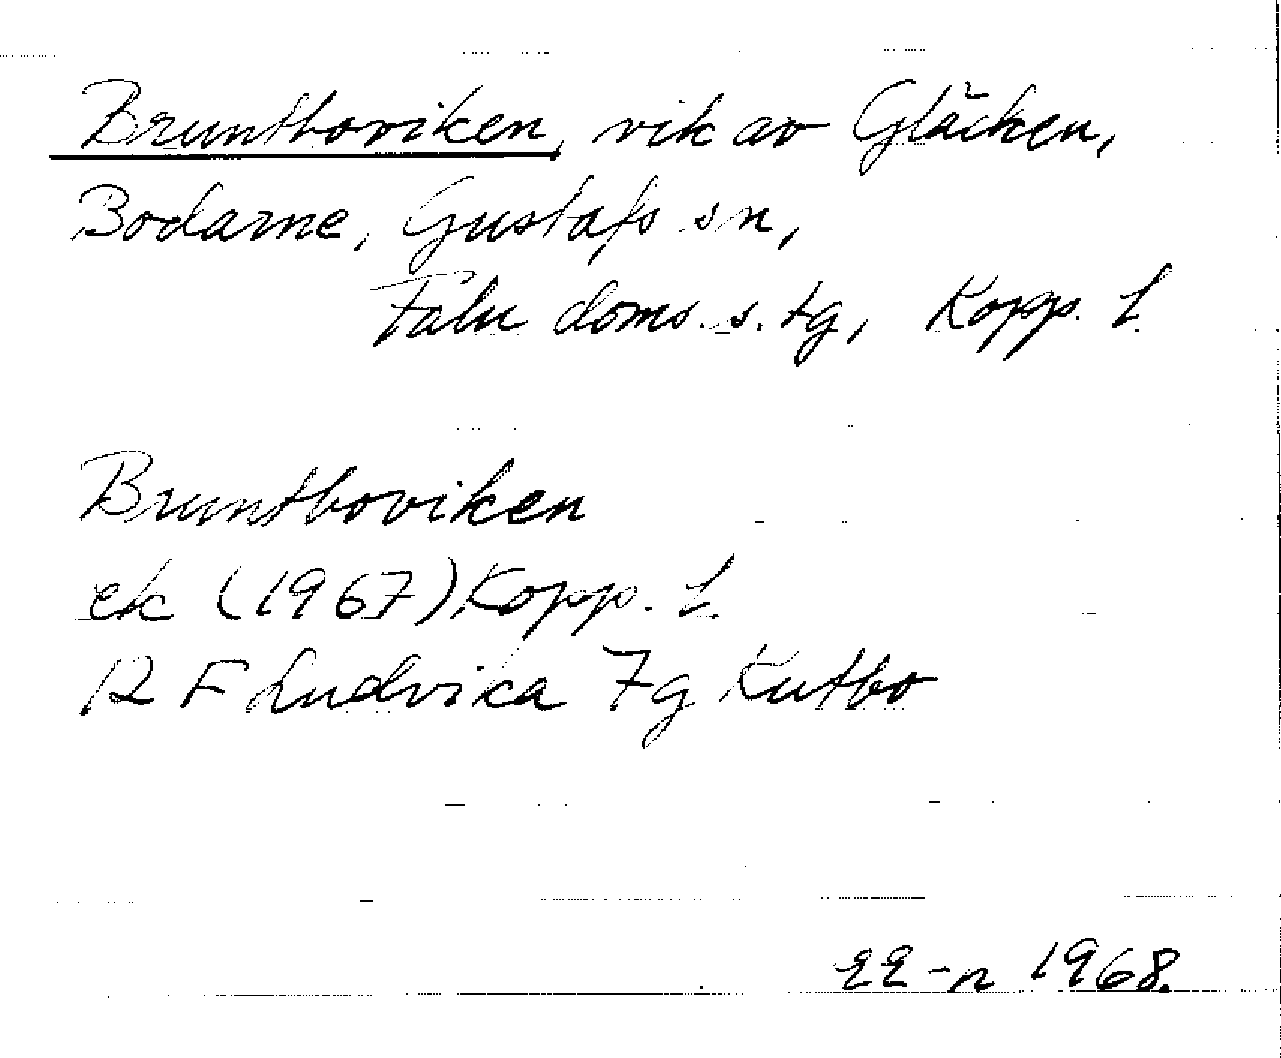 Bruntboviken, vik av Gläcken,
Bodarne, Gustafs sn,
Falu doms. s. tg, Kopp. L.
Bruntboviken
ek (1967) Kopp. L.
12 F Ludvika 7g Kutbo
1968.